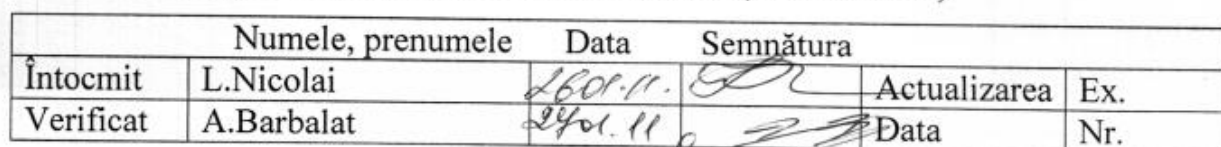 Numele, prenumele Data Semnătura
Întocmit L.Nicolai 26.01.11. Actualizarea Ex.
Verificat A.Barbalat 27.01.11 Data Nr.